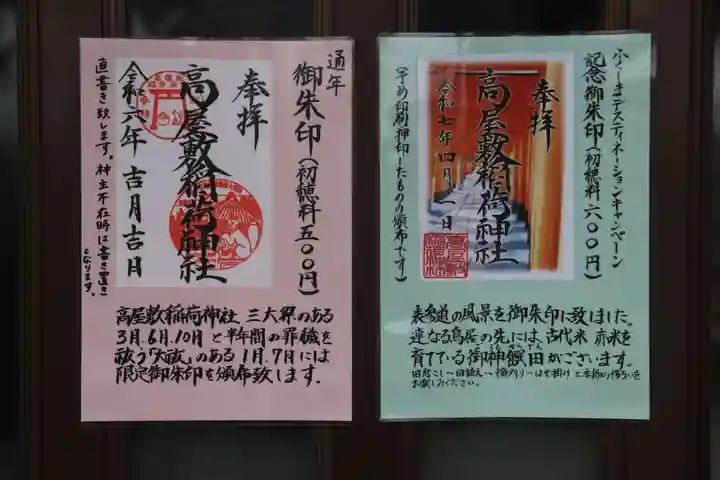 通年
御朱印(初穂料五〇〇円)
奉拝
高屋敷稲荷神社
令和六年吉月吉日
直書き致します。神主不在時は書き置き
となります。
高屋敷稲荷神社 三大祭のある
3月.6月.10月と半年間の罪穢を
祓う「大祓」のある1月.7月には
限定御朱印を頒布致します。
ふくしまデスティネーションキャンペーン
記念御朱印(初穂料六〇〇円)
奉拝
高屋敷稲荷神社
令和七年四月一日
(予め印刷押印したものの頒布です)
表参道の風景を御朱印に致しました。
連なる鳥居の先には、古代米 赤米を
育てている御神饌田がございます。
田起こし〜田植え〜稲刈り〜はせ掛けと季節の移ろいを
お楽しみください。